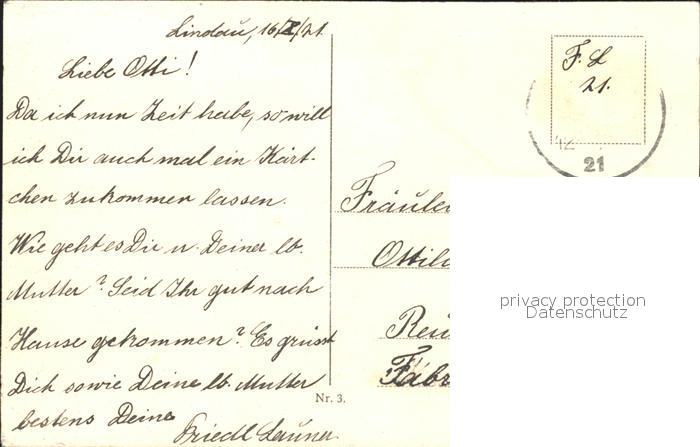 Lindau, 16/X/21.
Liebe Otti!
Da ich nun Zeit habe, so will
ich Dir auch mal ein Kärt-
chen zukommen lassen.
Wie geht es Dir u. Deiner lb.
Mutter? Seid Ihr gut nach
Hause gekommen? Es grüsst
Dich sowie Deine lb. Mutter
bestens Deine
Friedl
F. L
21.
12
21
Fräulei
Ottil
Reu
Fabr
Nr. 3.
privacy protection
Datenschutz